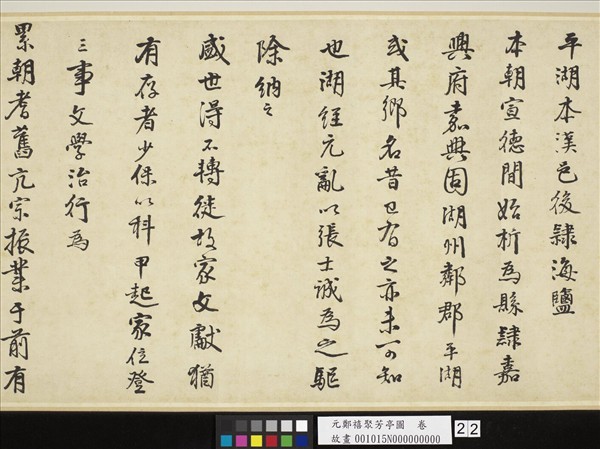 平湖本漢邑後隸海鹽
本朝宣德間始析為縣隸嘉
興府嘉興固湖州鄰郡平湖
或其鄉名昔已有之亦未可知
也湖經元亂以張士誠為之驅
除納之
盛世得不轉徙故家文獻猶
有存者少保以科甲起家位登
三事文學治行為
累朝耆舊亢宗振業于前有
元鄭禧聚芳亭圖 卷
故畫 001015N000000000
22